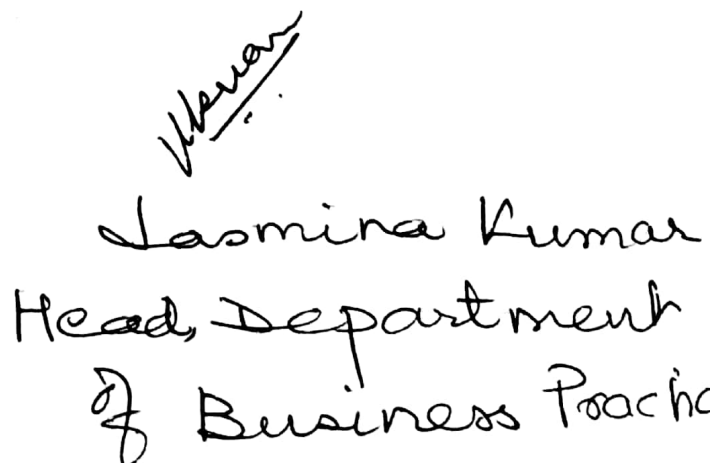 Jasmina Kumar
Head, Department
of Business